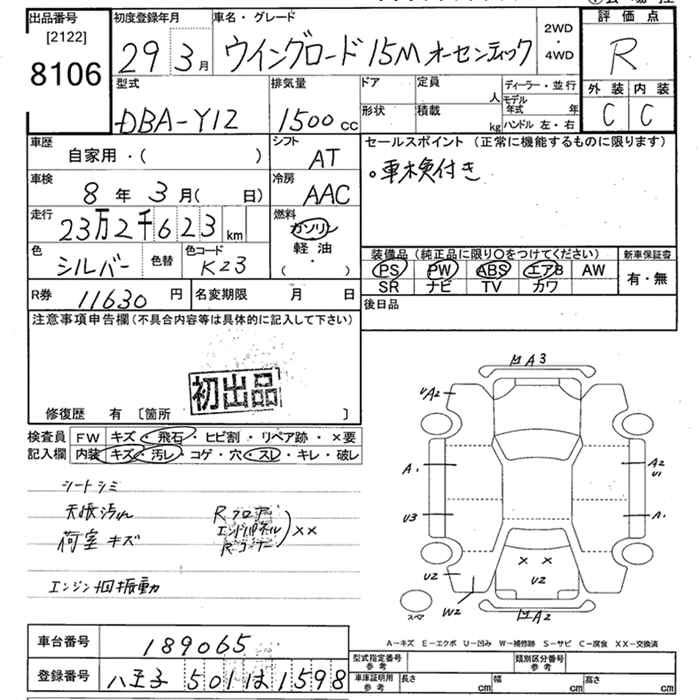 出品番号 初度登録年月 車名・グレード 2WD・4WD 評価点
[2122]
8106 29 3月 ウイングロード 15M オーセンティック R
型式 排気量 ドア 定員 人 ディーラー・並行 外装 内装
DBA-Y12 1500 cc 形状 積載 kg モデル年式 年 ハンドル 左・右 C C
車歴 自家用・( ) シフト AT セールスポイント (正常に機能するものに限ります)
車検 8年 3月( 日) 冷房 AAC 。車検付き
走行 23万2千623 km 燃料 ガソリン 軽油 ( ・ )
色 シルバー 色替 色コード K23 装備品 (純正品に限り○をつけてください) 新車保証書
PS PW ABS エアB AW 有・無
SR ナビ TV カワ
R券 11630円 名変期限 月 日 後日品
注意事項申告欄(不具合内容等は具体的に記入して下さい)
初出品
修復歴 有 [箇所 ]
検査員 FW キズ・飛石・ヒビ割・リペア跡・×要
記入欄 内装 キズ・汚レ・コゲ・穴・スレ・キレ・破レ
シートシミ
天張汚れ Rフロア
荷室キズ エンドパネル ××
Rコーナー
エンジン 振動
A3
A2
A1 A2 U1
U3 A1
× ×
U2 U2
W2 A2
スペア
A-キズ E-エクボ U-凹み W-補修跡 S-サビ C-腐食 XX-交換済
車台番号 189065 型式指定番号 参考 類別区分番号 参考
登録番号 八王子 501 は 1598 車庫証明用 参考 長さ cm 幅 cm 高さ cm